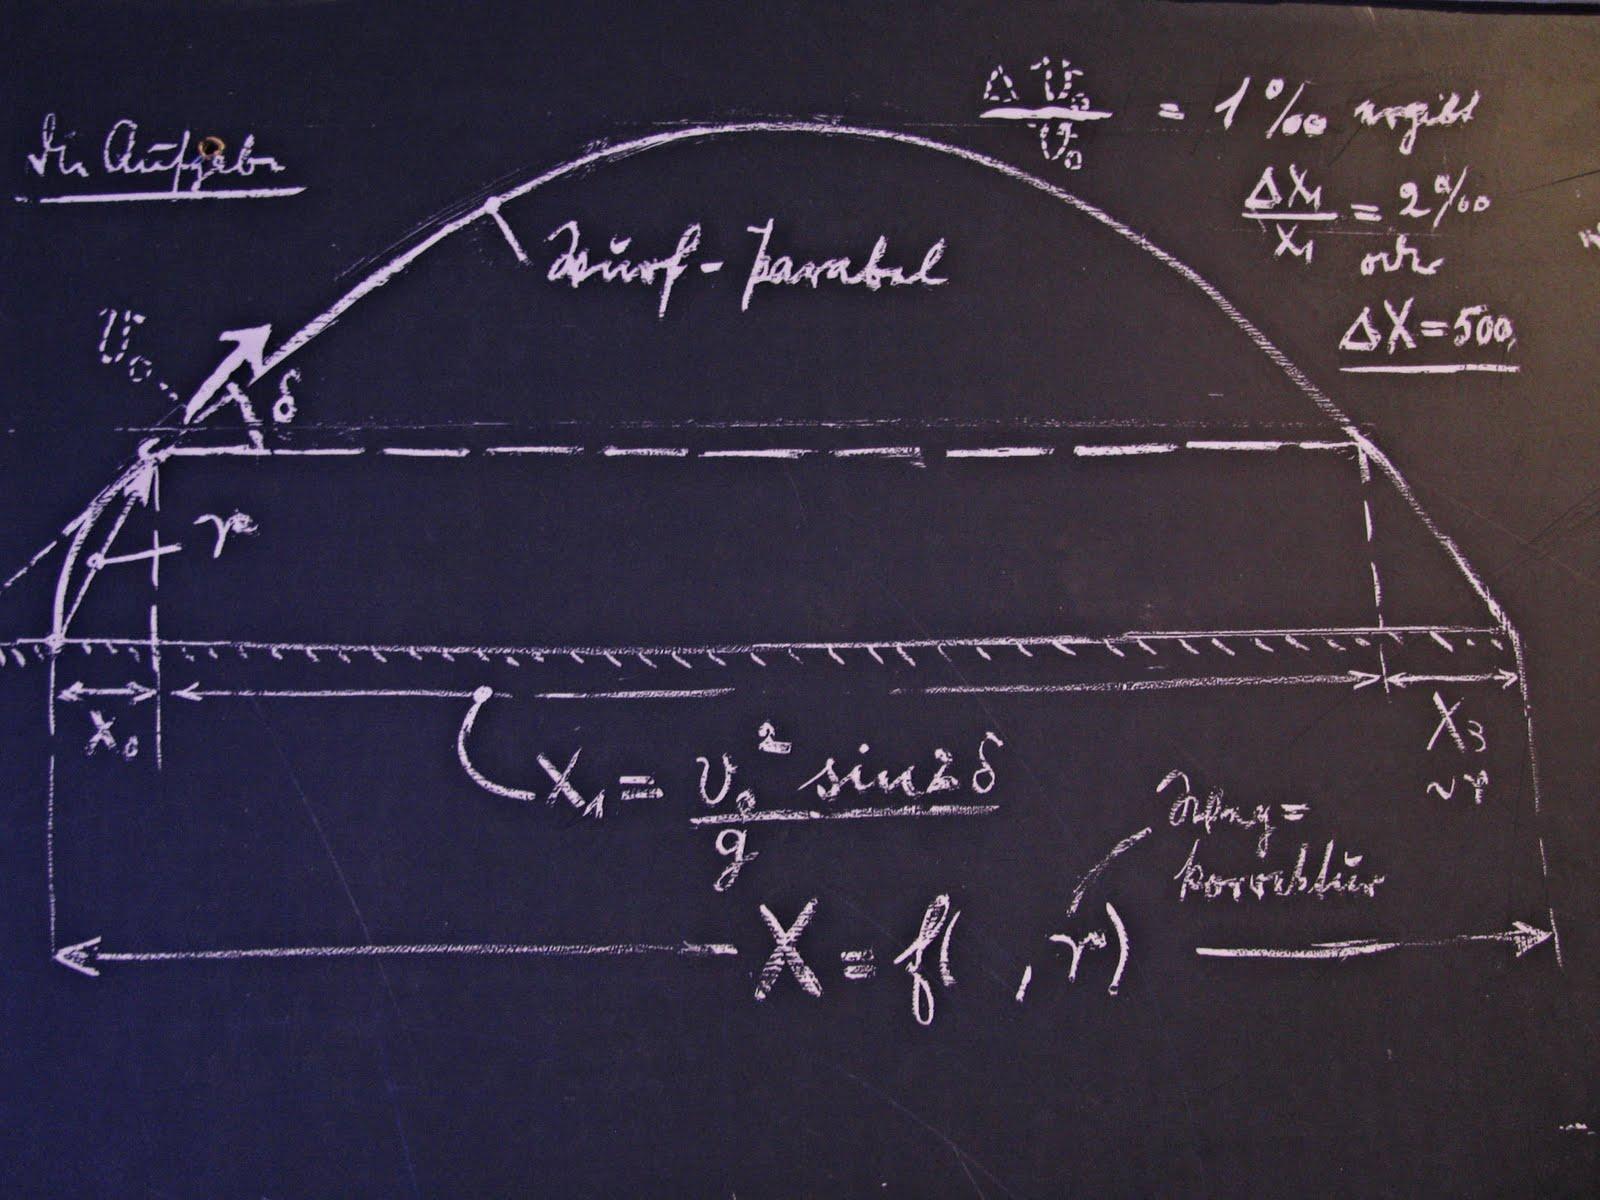 Die Aufgabe
Δ v₀ / v₀ = 1‰ ergibt
ΔX₁ / X₁ = 2‰
oder
ΔX = 500
Wurf-Parabel
v₀
δ
r
X₀
X₁ = v₀² sin 2δ / g
X₃
~r
korrektur
X = f( , r)